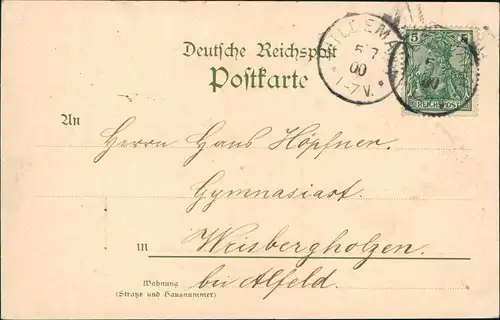 Deutsche Reichspost
Postkarte
5 5
REICHSPOST
5 7
00
1-7V.
5
00
An
Herrn Hans Höpfner.
Gymnasiast.
in Weisbergholzen.
bei Alfeld.
Wohnung
(Straße und Hausnummer)